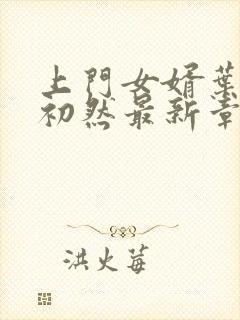 上門女婿葉
初然最新章
洪火莓